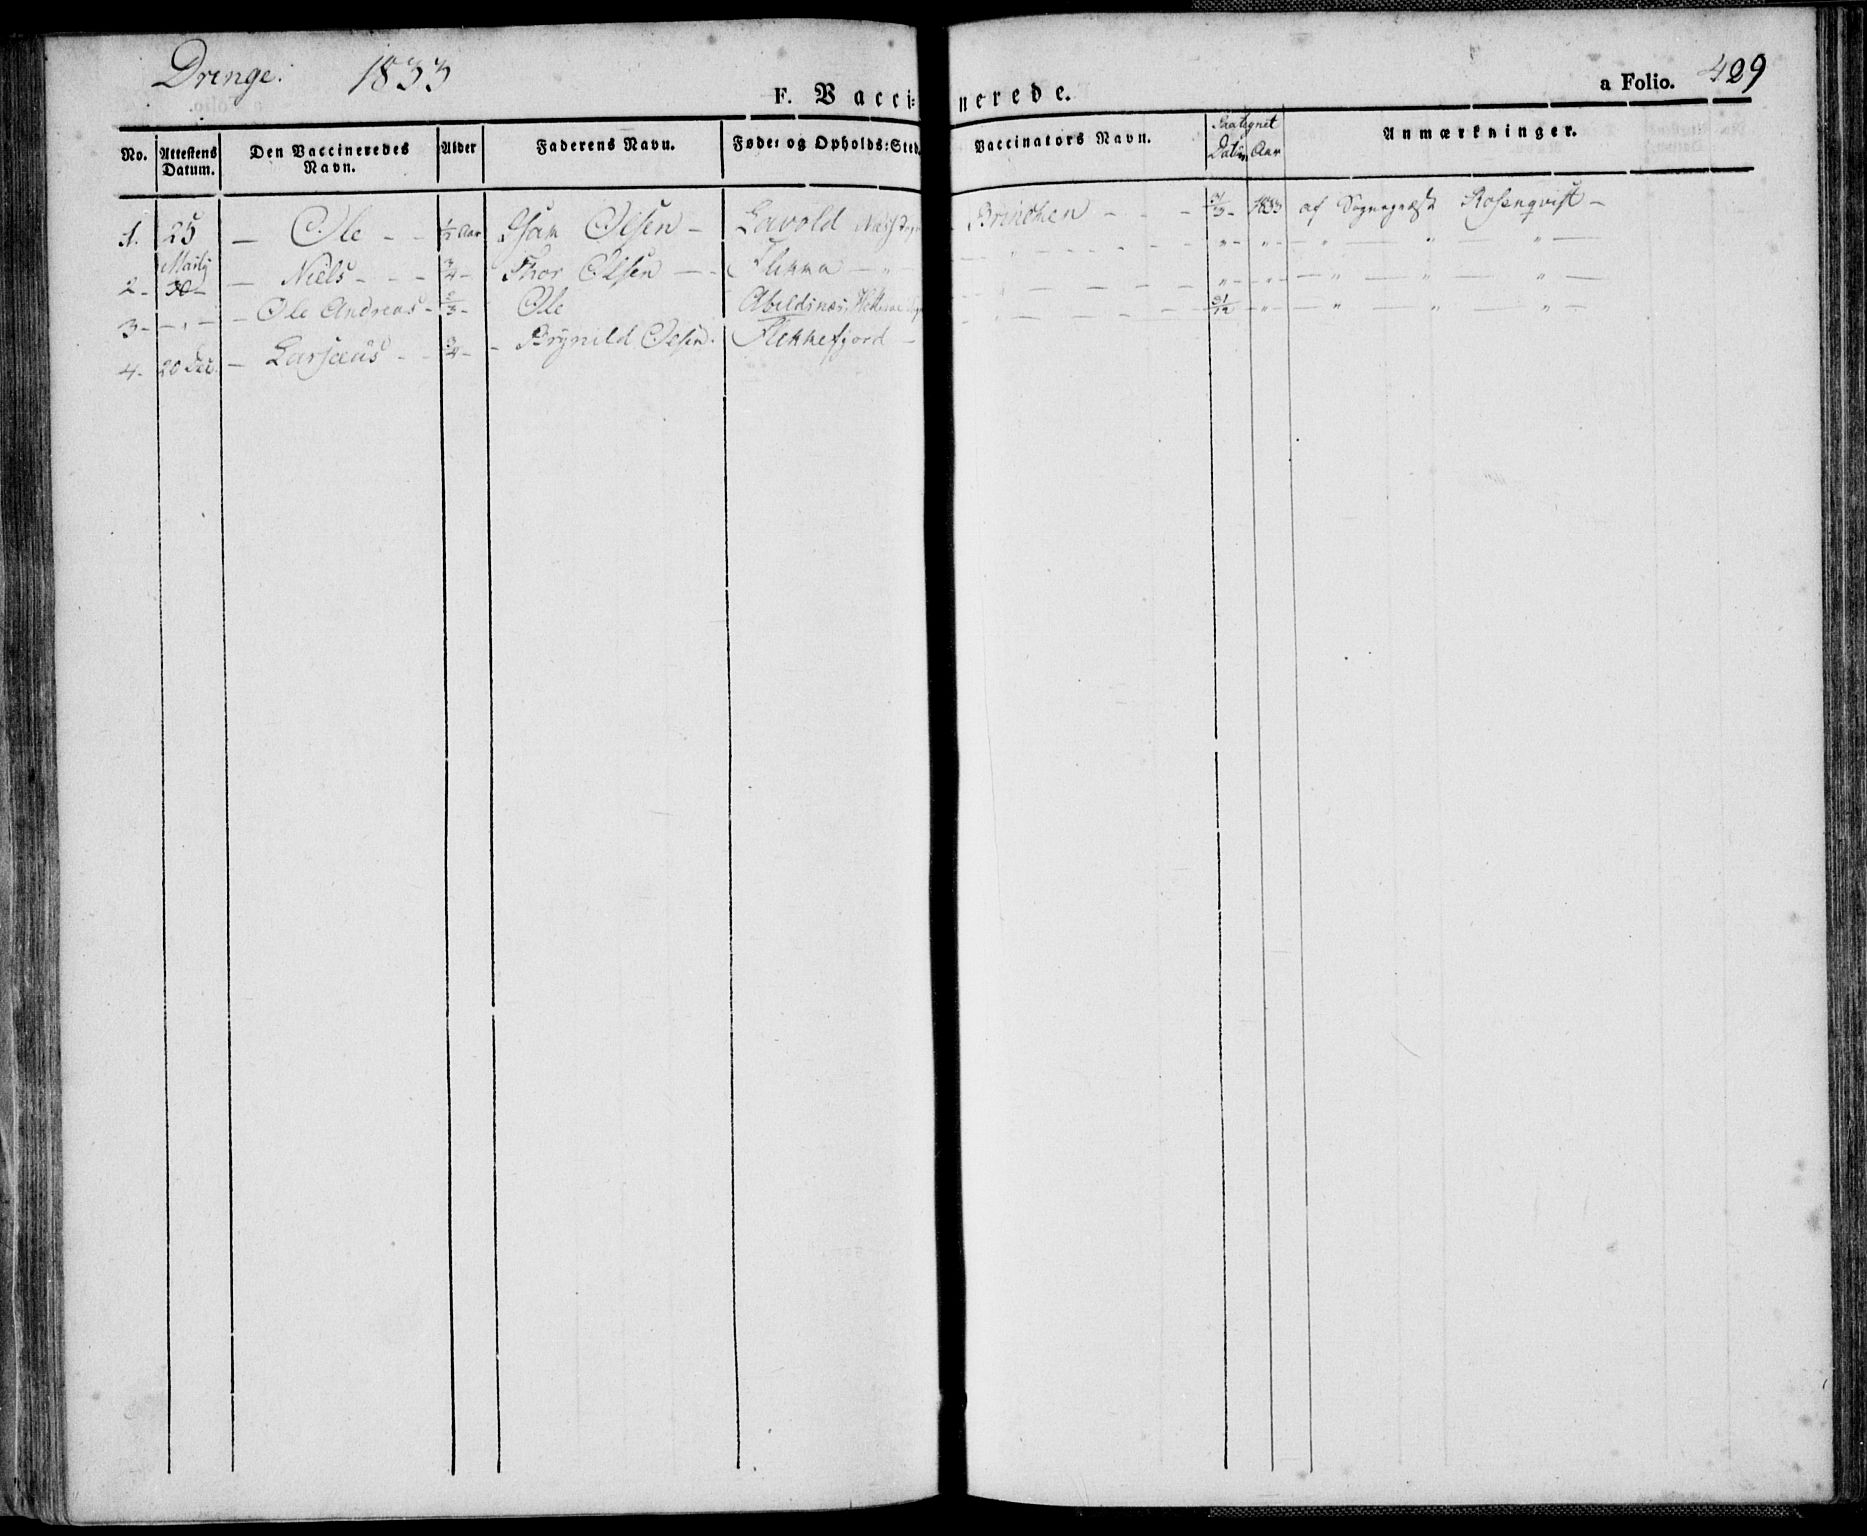 Drenge. 1833
F. Vacci=nerede.
a Folio. 429
No. Attestens Datum. Den Vaccineredes Navn. Alder Faderens Navn. Føde= og Opholds=Sted. Vaccinators Navn. Datum Aar Anmærkninger.
1. 25 — Ole - - ½ Aar Olsen - Lavold Næs Brinchen - - - 1833 af Sognepræst Rosenqvist —
2 - 30 — Niels - - - ¾ - Thor Olsen — - Flikka — " - " — " - " — " — " — " —
3 - - " - — Ole Andreas - ⅔ - Ole Abeldsnæs, " - " - — " — " — " —
4 - 20 Dec. — - - ¾ - - Brynild Olsen. Flekkefjord - " — " — " —